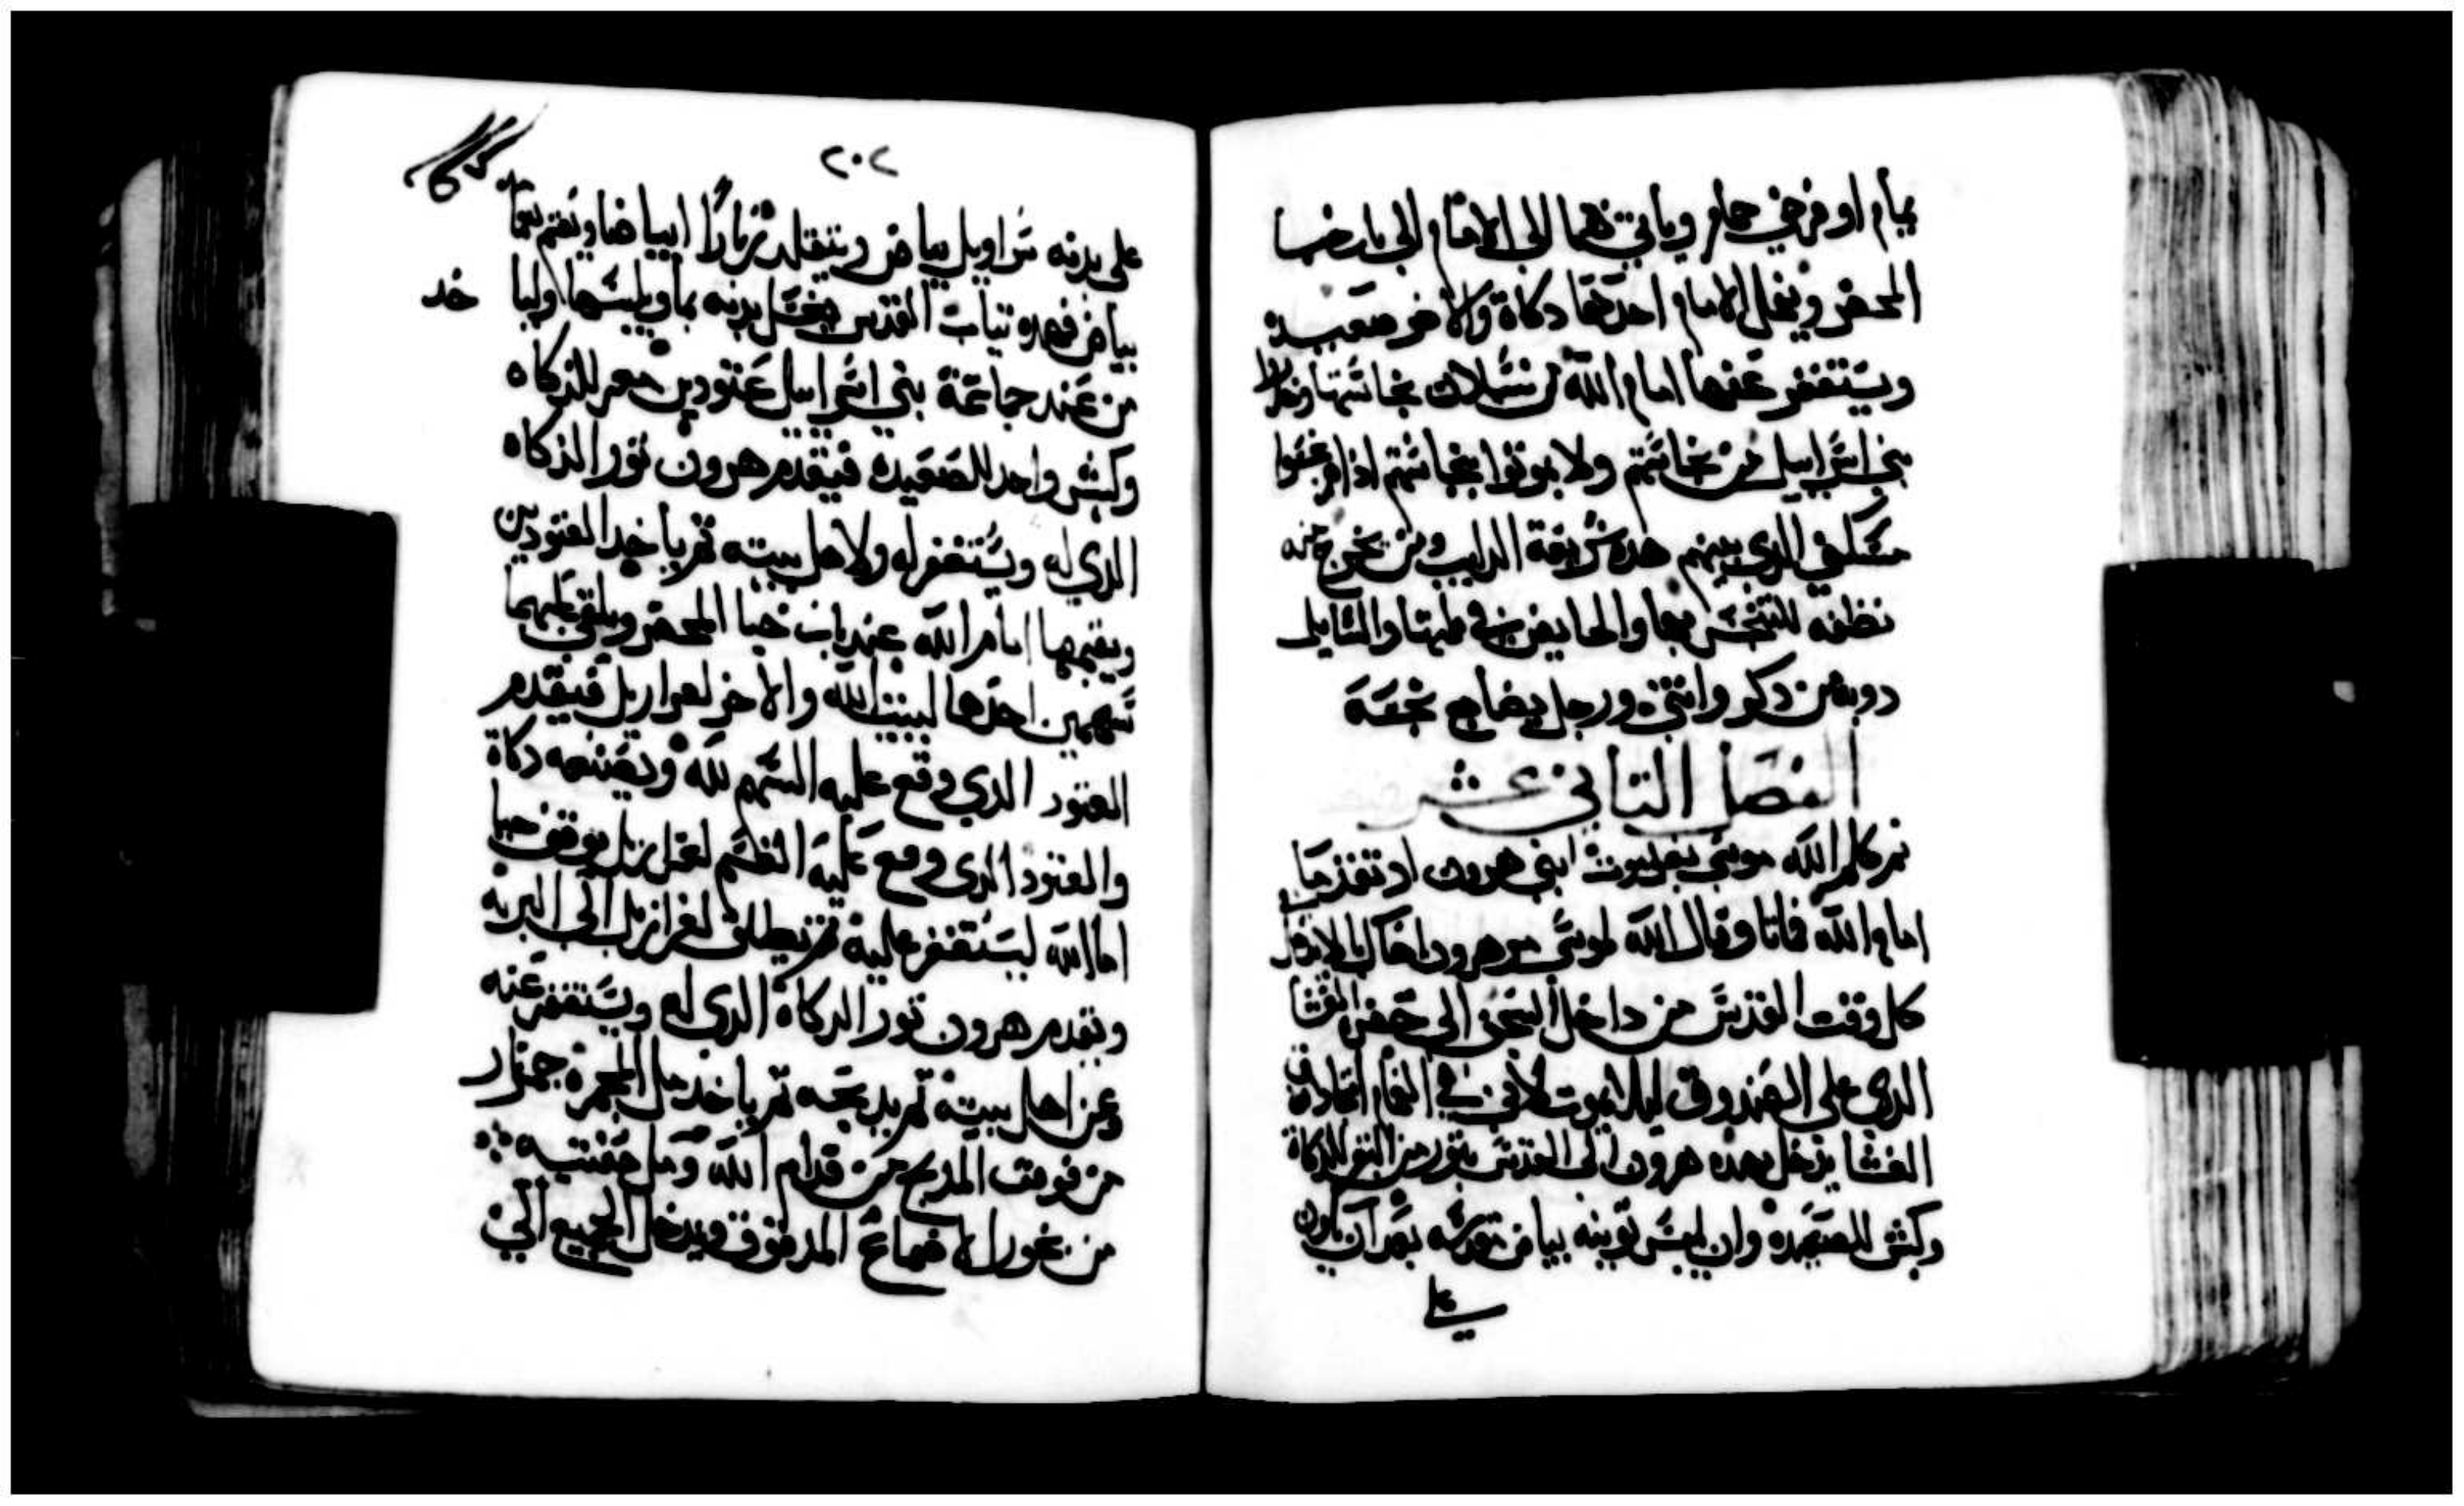 يمام او فرخي حمام وياتي بهما الى الامام الى باب خبا
المحضر ويفعل الامام احدهما دكاة والاخر صعيده
ويستغفر عنها امام الله من سيلان نجاستها
بني اسراييل من نجاستهم ولا يموتوا بنجاستهم اذا
مسكني الدي بينهم هده شريعة الدايب ومن تخرج منه
نطفه للتنجس بها والحايض في طمتها والسايل
دوبه من دكر وانتى ورجل يضاجع نجسه
الفصل التاني عشر
تم كلم الله موسى بعد موت ابني هرون اد تقدما
امام الله فماتا وقال الله لموسى مر هرون اخاك ان لا يدخل
كل وقت القدس من داخل السجف الى حضرة الغشا
الدي على الصندوق ليلا يموت لاني في الغمام
الغشا يدخل بهده هرون الى القدس بتور من البقر للدكاة
وكبش للصعيده وان يلبس تونيه بياض
على
٢٠٢
على بدنه سراويل بياض ويتقلد زنارا ابياضا ويتعمم بعمامة
بياض فهده تياب القدس فيغسل بدنه بما ويلبسها
خد
من عند جماعة بني اسراييل عتودين معز للدكاه
وكبش واحد للصعيده فيقدم هرون تور الدكاه
الدي له ويستغفر له ولاهل بيته تم ياخد العتودين
ويقيمها امام الله عند باب خبا المحضر ويلقي عليهما
سهمين احدها لبيت الله والاخر لعزازيل فيقدم
العتود الدي وقع عليه السهم لله ويصنعه دكاة
والعتود الدي وقع عليه السهم لعزازيل يوقف حيا
امام الله ليستغفر عليه تم يطلق لعزازيل الى البريه
ويقدم هرون تور الدكاة الدي له ويستغفر عنه
وعن اهل بيته تم يدبحه تم ياخد مل المجمرة جمر نار
من فوق المدبح من قدام الله ومل حفنتيه
من بخور الاصماغ المدقوق ويدخل الجميع الى